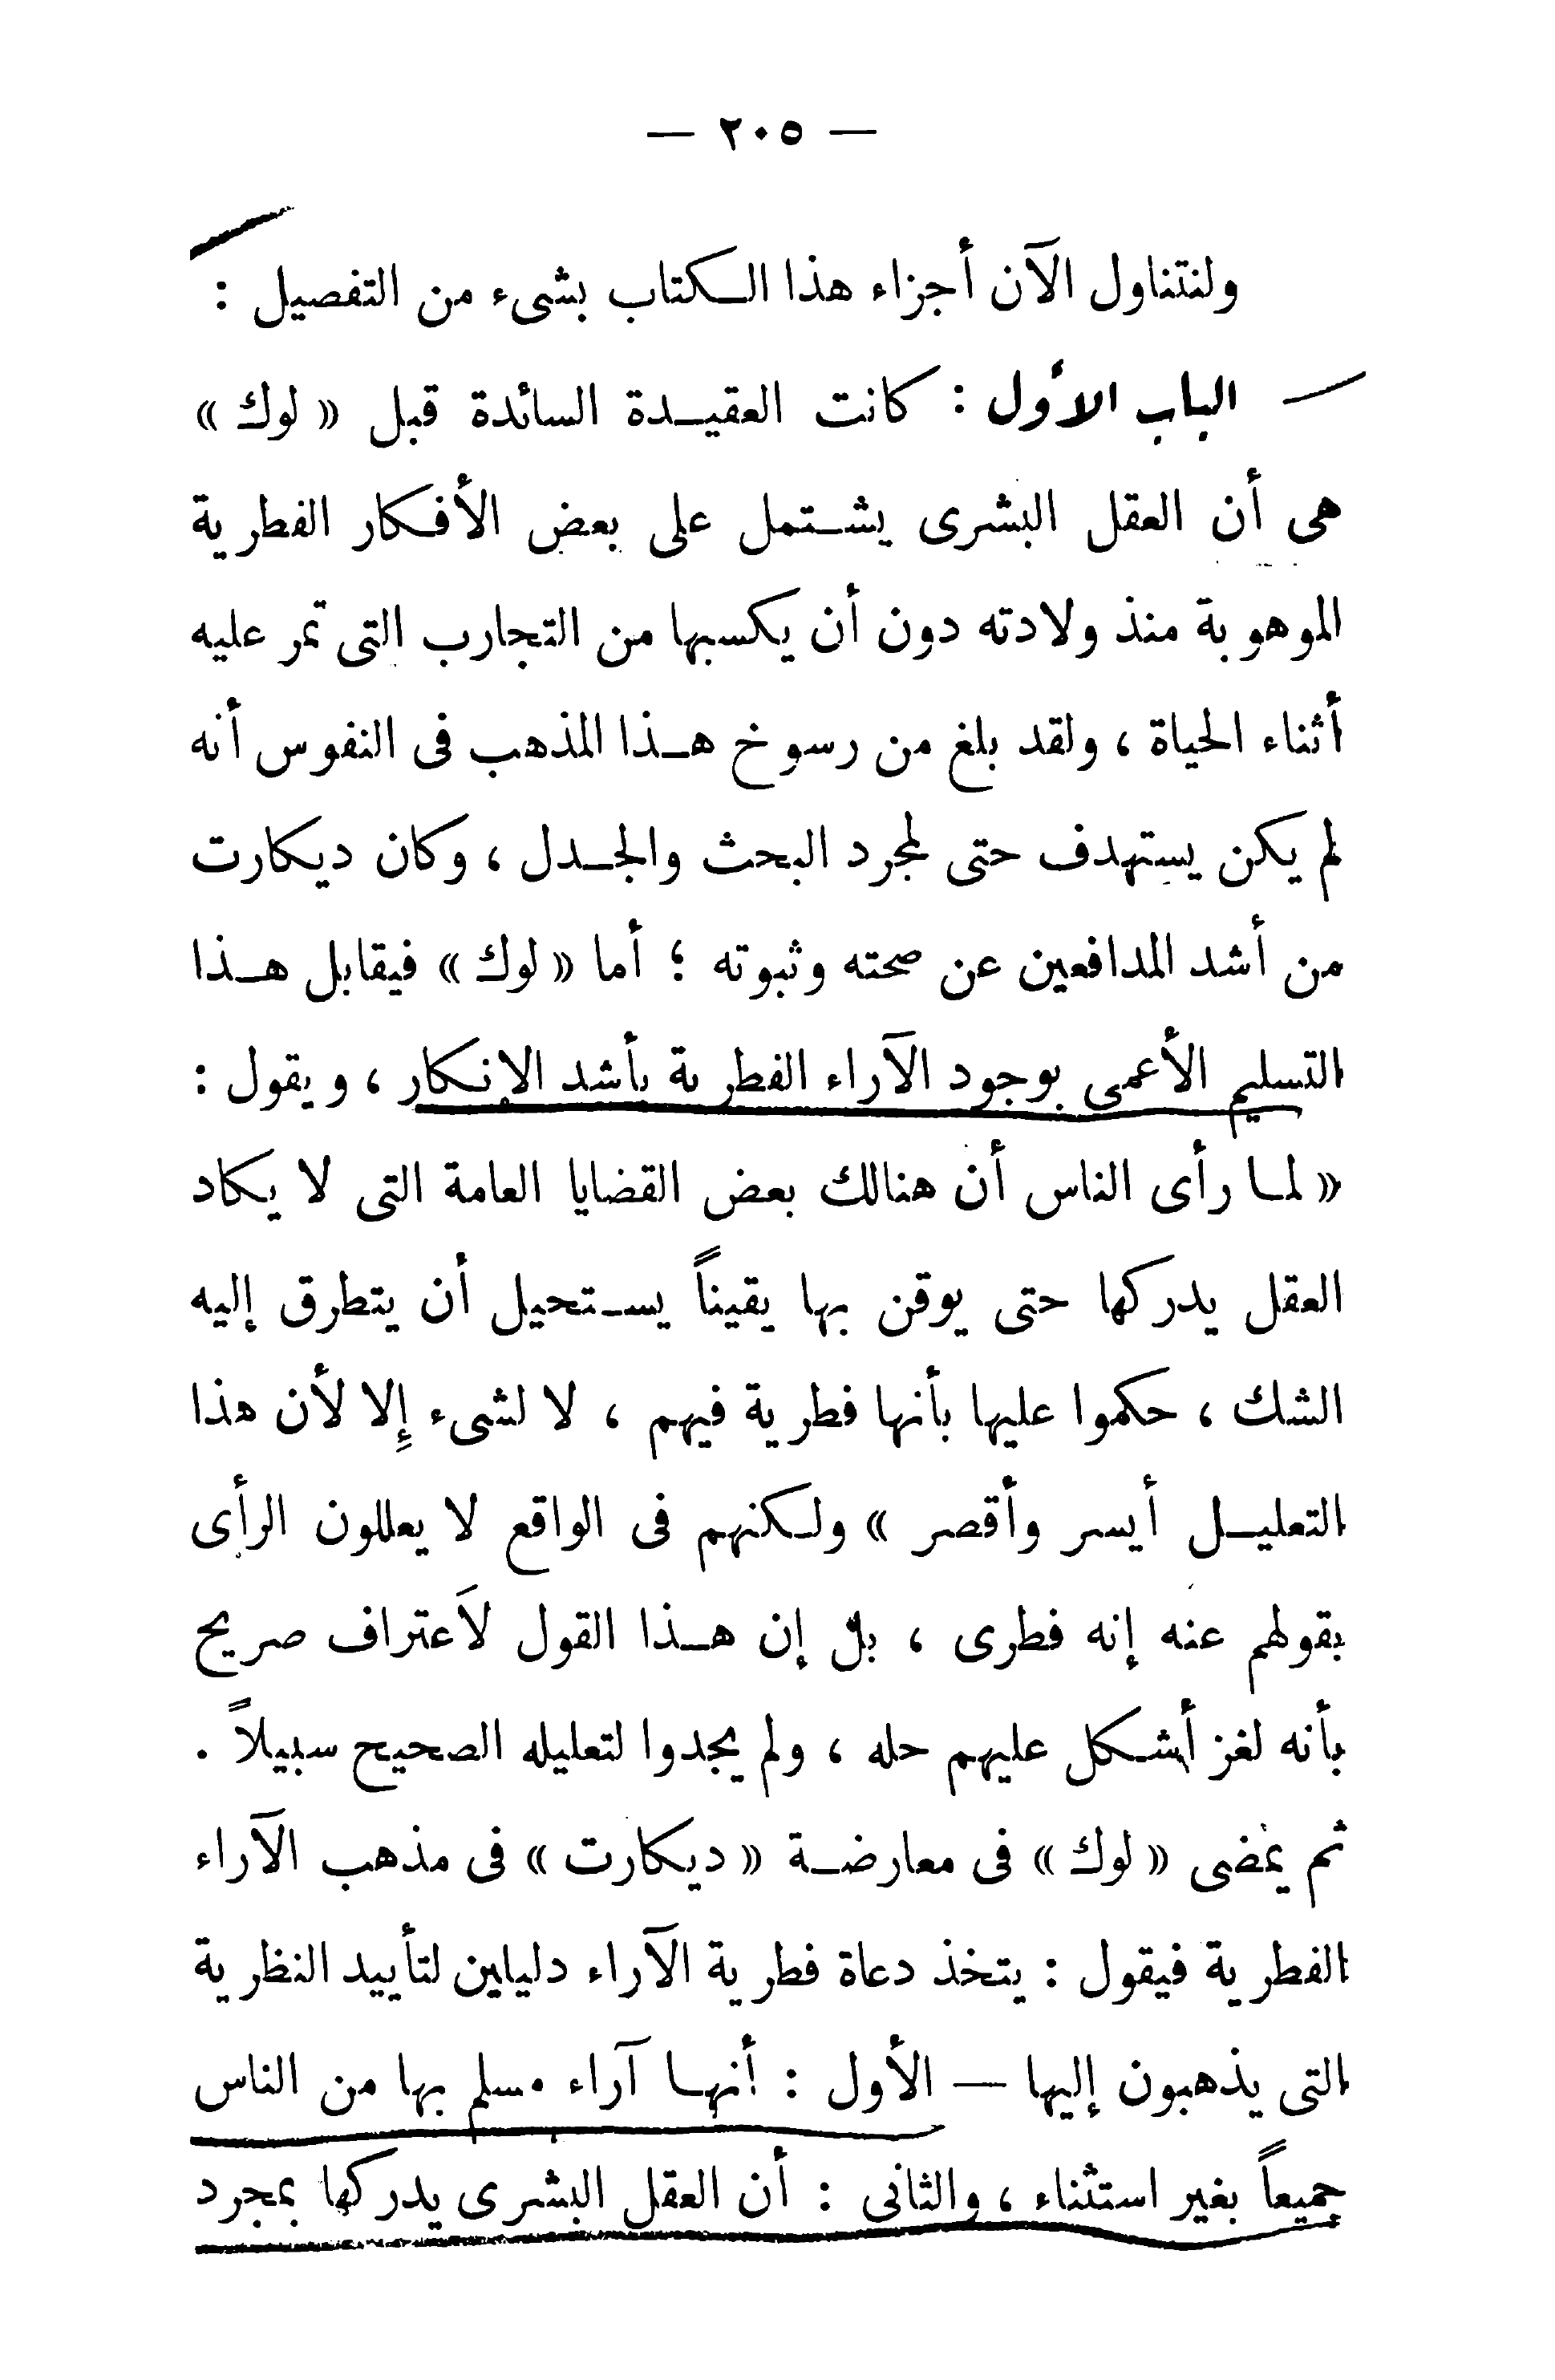 — ٢٠٥ —
ولنتناول الآن أجزاء هذا الكتاب بشىء من التفصيل :
الباب الأول : كانت العقيدة السائدة قبل « لوك »
هى أن العقل البشرى يشتمل على بعض الأفكار الفطرية
الموهوبة منذ ولادته دون أن يكسبها من التجارب التى تمر عليه
أثناء الحياة ، ولقد بلغ من رسوخ هذا المذهب فى النفوس أنه
لم يكن يستهدف حتى لمجرد البحث والجدل ، وكان ديكارت
من أشد المدافعين عن صحته وثبوته ؛ أما « لوك » فيقابل هذا
التسليم الأعمى بوجود الآراء الفطرية بأشد الإنكار ، ويقول :
« لما رأى الناس أن هنالك بعض القضايا العامة التى لا يكاد
العقل يدركها حتى يوقن بها يقيناً يستحيل أن يتطرق إليه
الشك ، حكموا عليها بأنها فطرية فيهم ، لا لشىء إلا لأن هذا
التعليل أيسر وأقصر » ولكنهم فى الواقع لا يعللون الرأى
بقولهم عنه إنه فطرى ، بل إن هذا القول لَاعتراف صريح
بأنه لغز أشكل عليهم حله ، ولم يجدوا لتعليله الصحيح سبيلاً .
ثم يمضى « لوك » فى معارضة « ديكارت » فى مذهب الآراء
الفطرية فيقول : يتخذ دعاة فطرية الآراء دليلين لتأييد النظرية
التى يذهبون إليها — الأول : أنها آراء مسلم بها من الناس
جميعاً بغير استثناء ، والثانى : أن العقل البشرى يدركها بمجرد